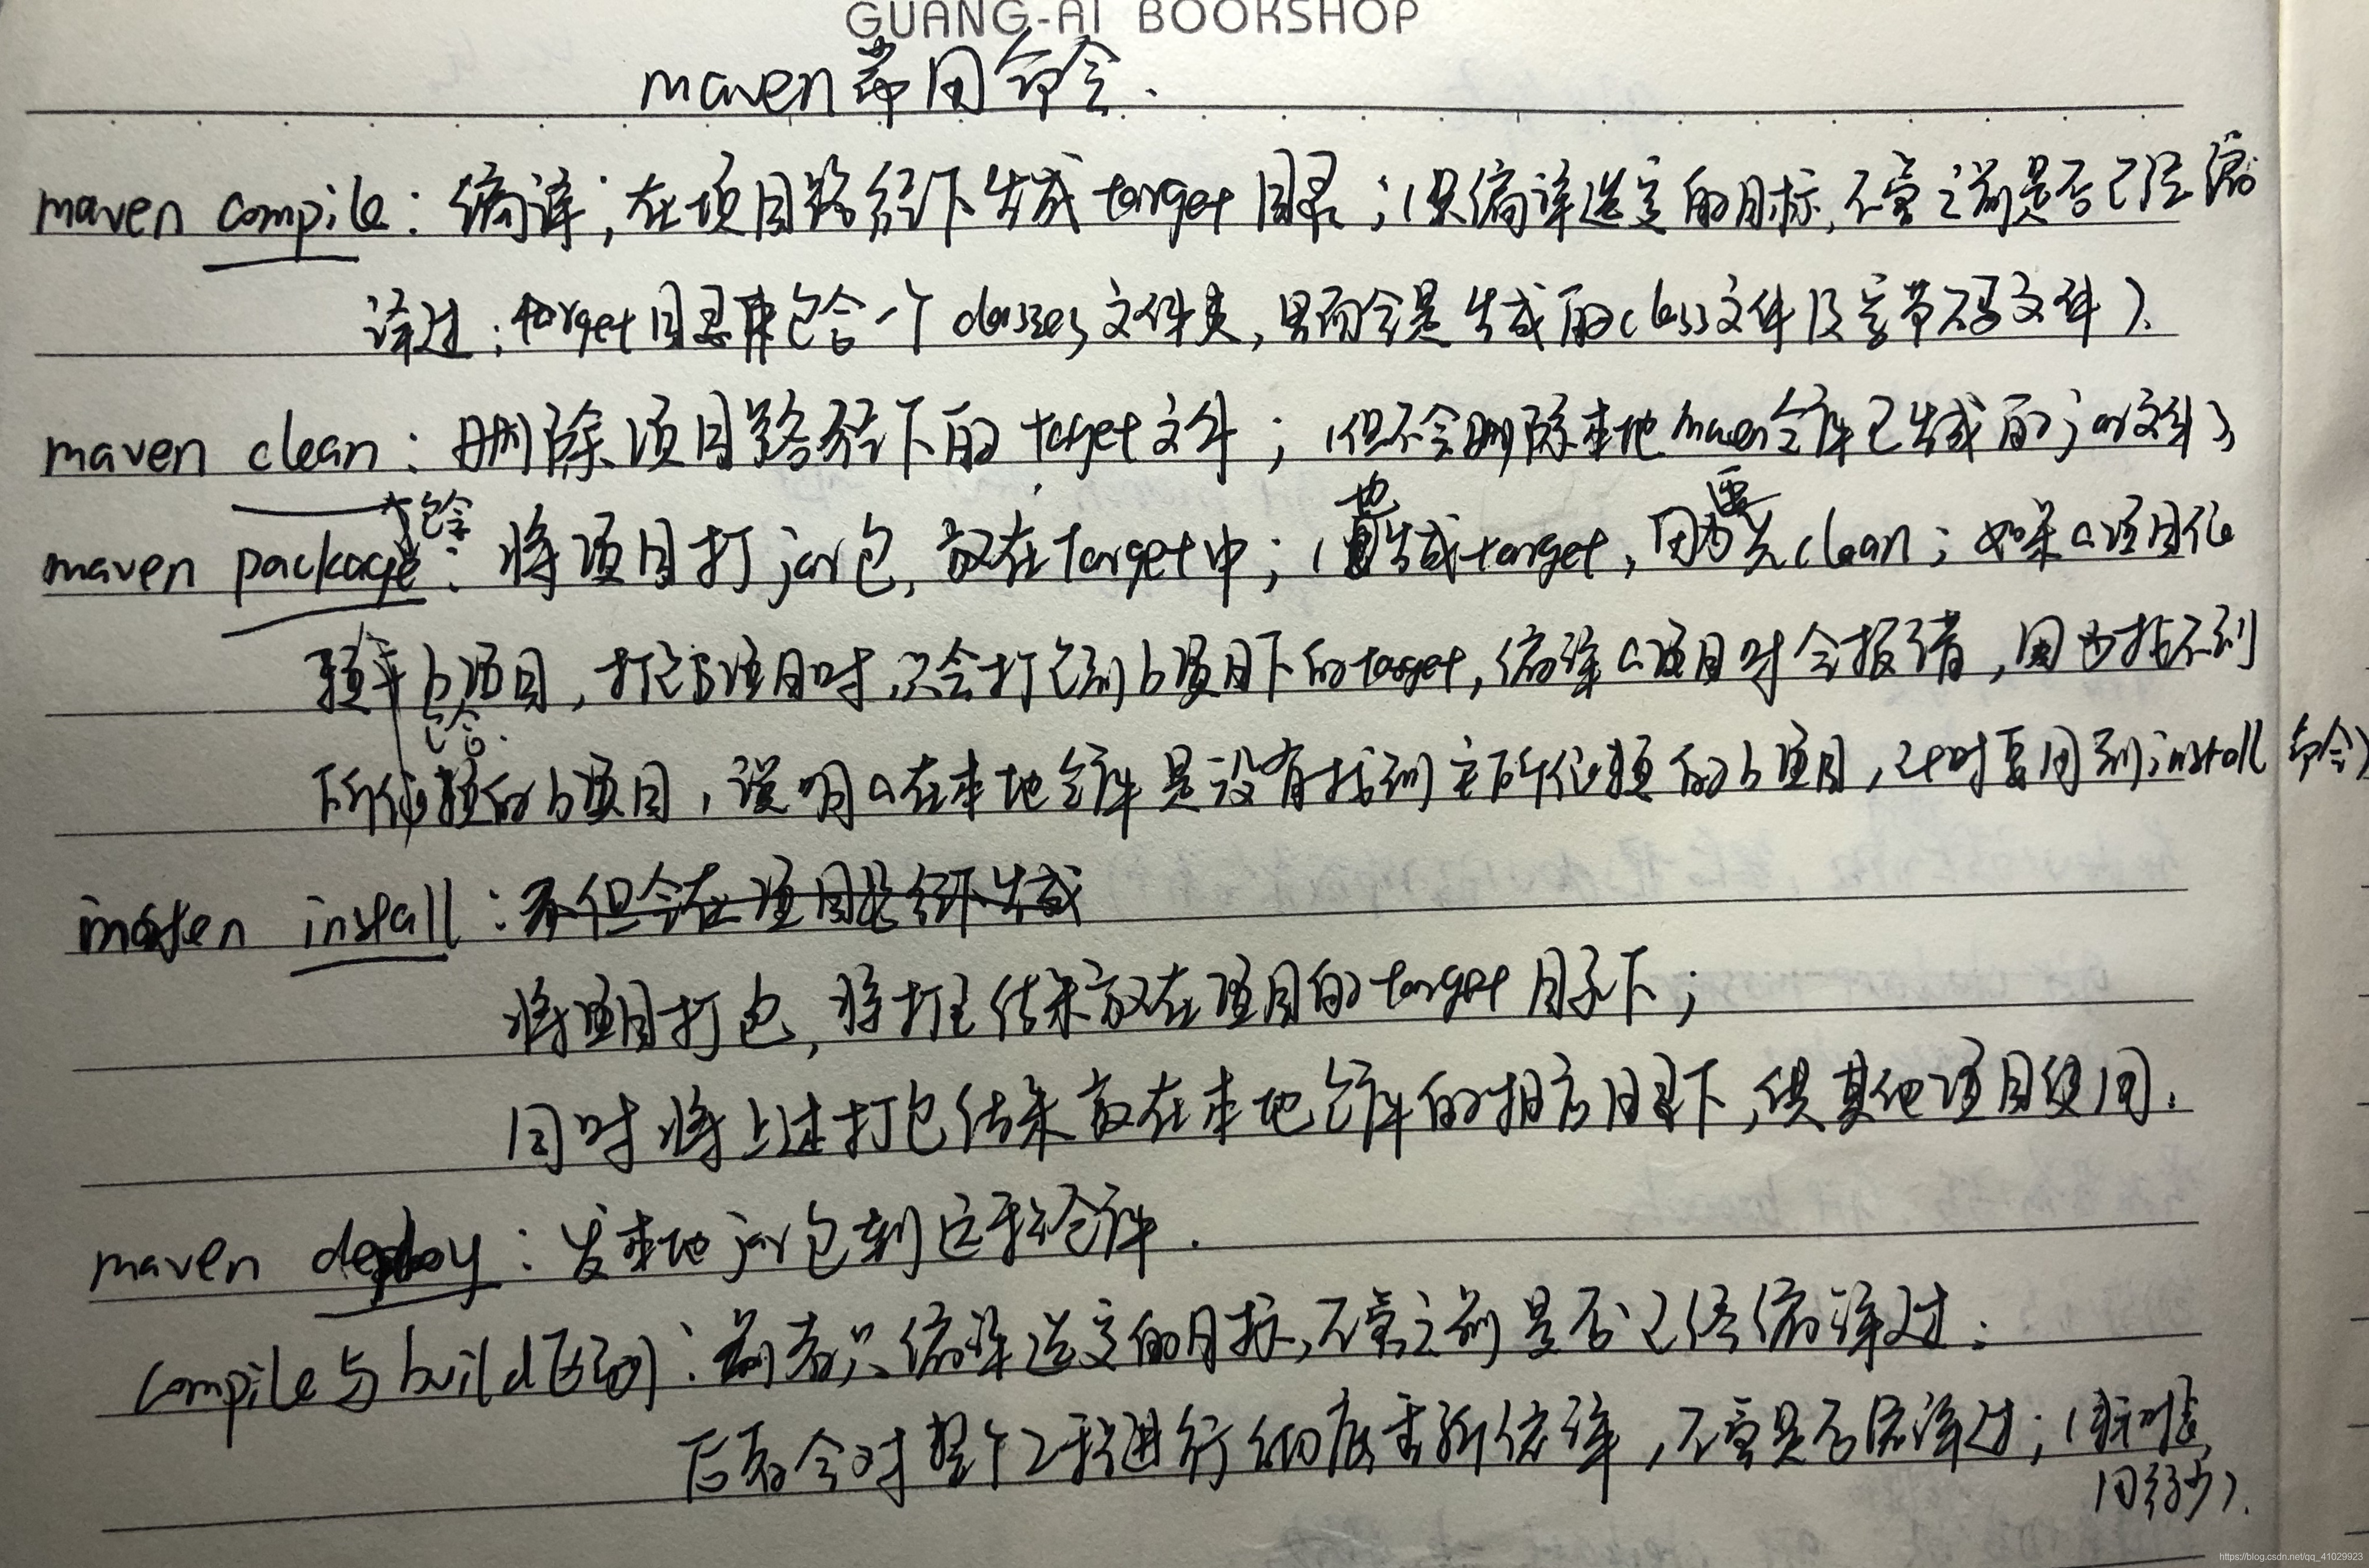 GUANG-AI BOOKSHOP
maven常用命令.
maven compile: 编译;在项目路径下生成target目录;(只编译选定的目标,不管之前是否已经编
译过;target目录中包含一个classes文件夹,里面全是生成的class文件及字节码文件).
maven clean: 删除项目路径下的target文件;(但不会删除本地maven仓库已生成的jar文件)
包含
maven package: 将项目打jar包,放在target中;(也生成target,因为要先clean;如果a项目依
赖于b项目,打包b项目时,只会打包到b项目下的target,编译a项目时会报错,因为找不到
包含.
所依赖的b项目,说明a在本地仓库是没有找到它所依赖的b项目,这时要用到install命令)
maven install: 不但会在项目路径下生成
将项目打包,将打包结果放在项目的target目录下;
同时将上述打包结果放在本地仓库的相应目录下,供其他项目使用.
maven deploy: 发本地jar包到远程仓库.
compile与build区别: 前者只编译选定的目标,不管之前是否已经编译过;
后者会对整个工程进行彻底重新编译,不管是否编译过;
用得少).
https://blog.csdn.net/qq_41029923